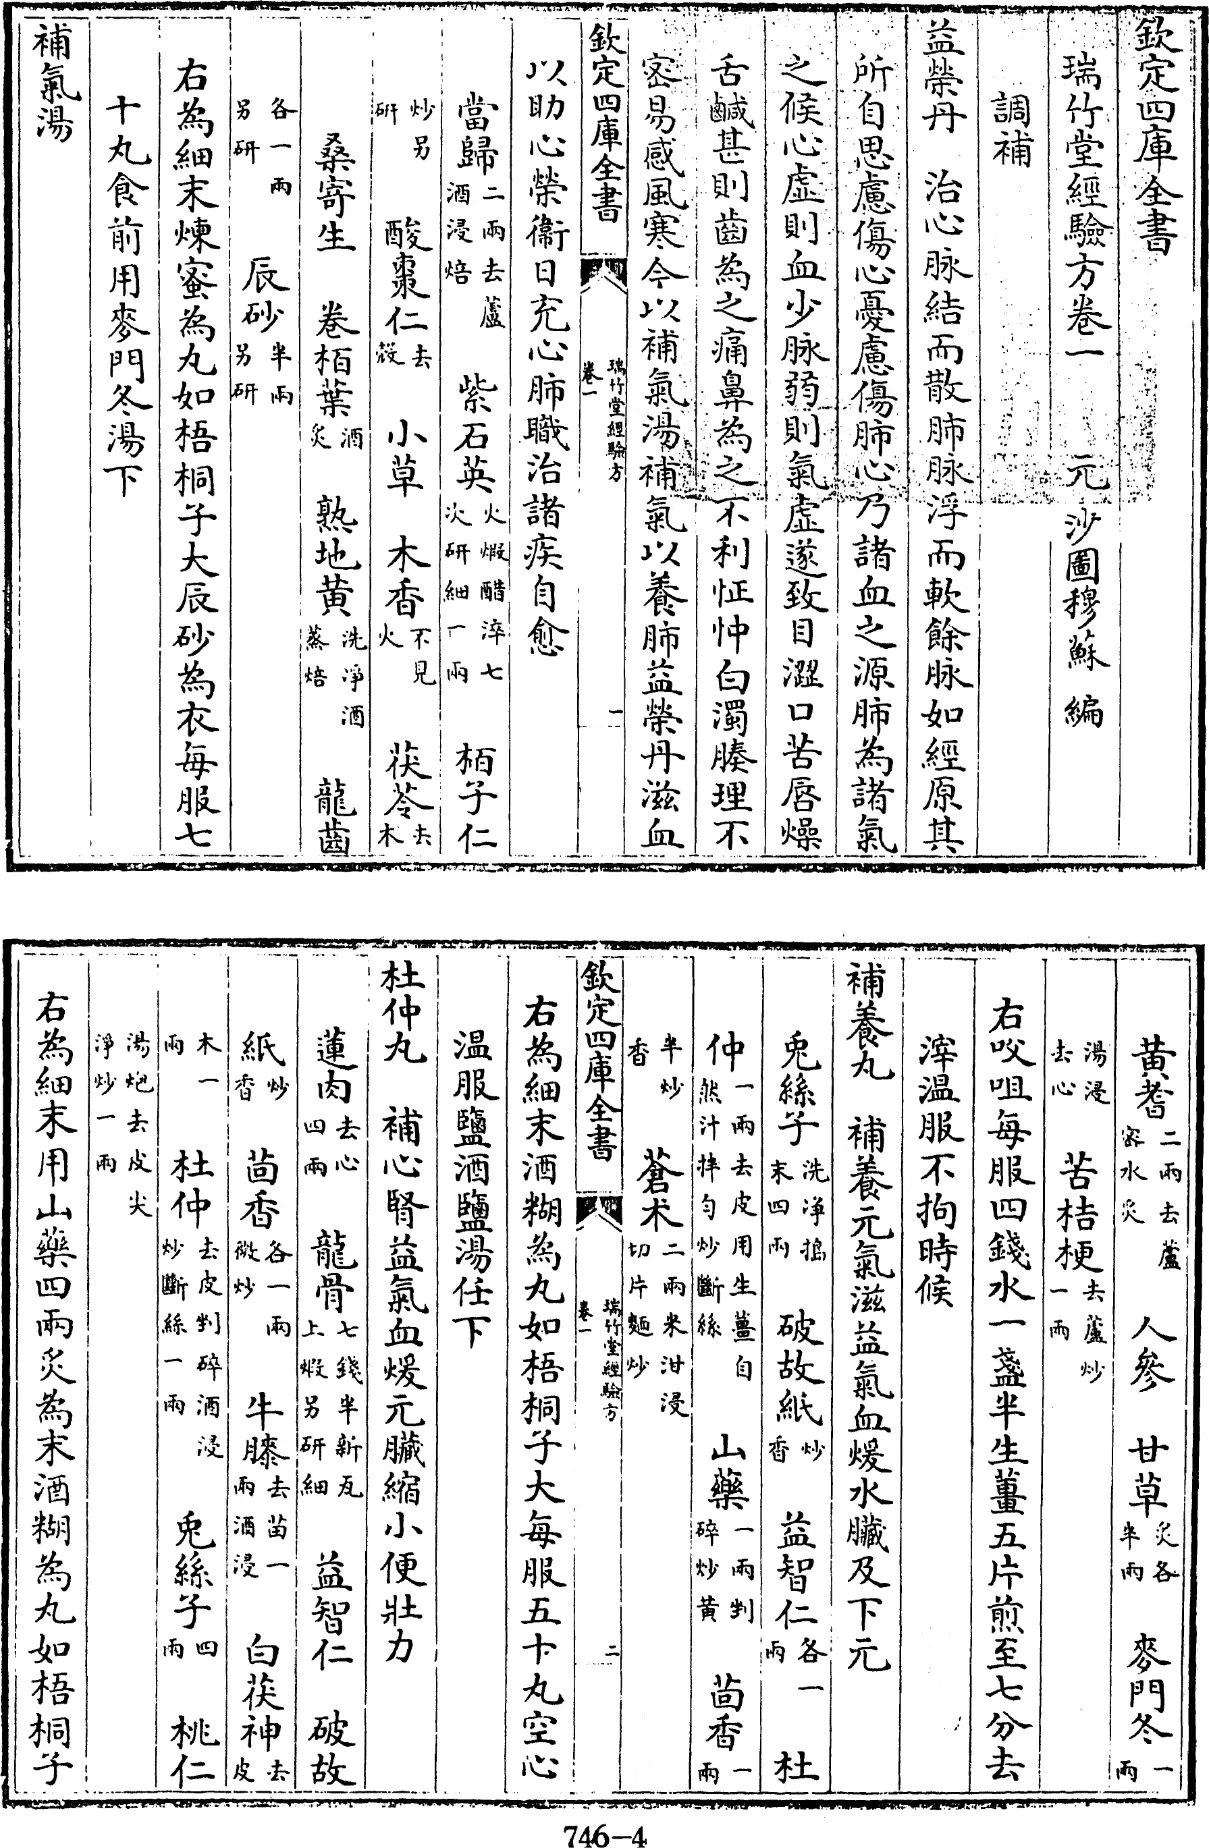 欽定四庫全書
瑞竹堂經驗方卷一　元　沙圖穆蘇　編
調補
益榮丹　治心脉結而散肺脉浮而軟餘脉如經原其
所自思慮傷心憂慮傷肺心乃諸血之源肺為諸氣
之候心虛則血少脉弱則氣虛遂致目澀口苦唇燥
舌鹹甚則齒為之痛鼻為之不利怔忡白濁腠理不
密易感風寒今以補氣湯補氣以養肺益榮丹滋血
欽定四庫全書　瑞竹堂經驗方卷一　一
以助心榮衛日充心肺職治諸疾自愈
當歸二兩去蘆酒浸焙　紫石英火煆醋淬七次研細一兩　栢子仁
炒另研　酸棗仁去殼　小草　木香不見火　茯苓去木
桑寄生　卷栢葉酒炙　熟地黄洗淨酒蒸焙　龍齒
各一兩另研　辰砂半兩另研
右為細末煉蜜為丸如梧桐子大辰砂為衣每服七
十丸食前用麥門冬湯下
補氣湯
黄耆二兩去蘆蜜水炙　人參　甘草炙各半兩　麥門冬一兩
湯浸去心　苦桔梗去蘆炒一兩
右㕮咀每服四錢水一盞半生薑五片煎至七分去
滓温服不拘時候
補養丸　補養元氣滋益氣血煖水臟及下元
兎絲子洗淨搗末四兩　破故紙炒香　益智仁各一兩　杜
仲一兩去皮用生薑自然汁拌匀炒斷絲　山藥一兩剉碎炒黄　茴香一兩
半炒香　蒼术二兩米泔浸切片麵炒
欽定四庫全書　瑞竹堂經驗方卷一　二
右為細末酒糊為丸如梧桐子大每服五十丸空心
温服鹽酒鹽湯任下
杜仲丸　補心腎益氣血煖元臟縮小便壯力
蓮肉去心四兩　龍骨七錢半新瓦上煆另研細　益智仁　破故
紙炒香　茴香各一兩微炒　牛膝去苗一兩酒浸　白茯神去皮
木一兩　杜仲去皮剉碎酒浸炒斷絲一兩　兎絲子四兩　桃仁
湯炮去皮尖淨炒一兩
右為細末用山藥四兩炙為末酒糊為丸如梧桐子
746-4